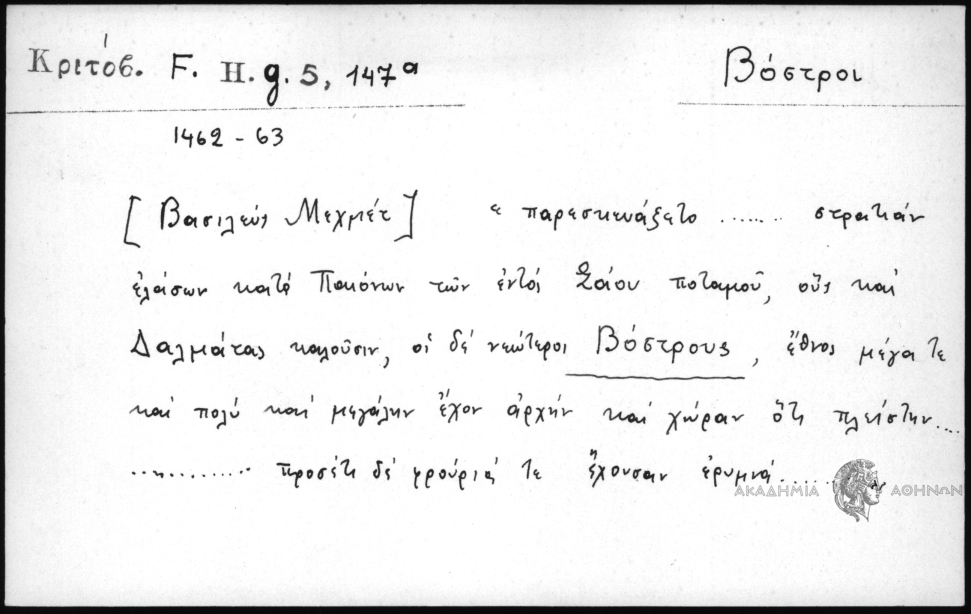 Κριτόβ. F. H. g. 5, 147α
Βόστροι
1462 - 63
[Βασιλεύς Μεχμέτ] « παρεσκευάζετο ....... στρατιάν
ἐλάσων κατά Παιόνων τῶν ἐντός Σάου ποταμοῦ, οὕς καί
Δαλμάτας καλοῦσιν, οἱ δέ νεώτεροι Βόστρους, ἔθνος μέγα τε
καί πολύ καί μεγάλην ἔχον ἀρχήν καί χώραν ὅτι πλείστην....
............ προσέτι δέ φρούριά τε ἔχουσαν ἐρυμνά......»
ΑΚΑΔΗΜΙΑ ΑΘΗΝΩΝ